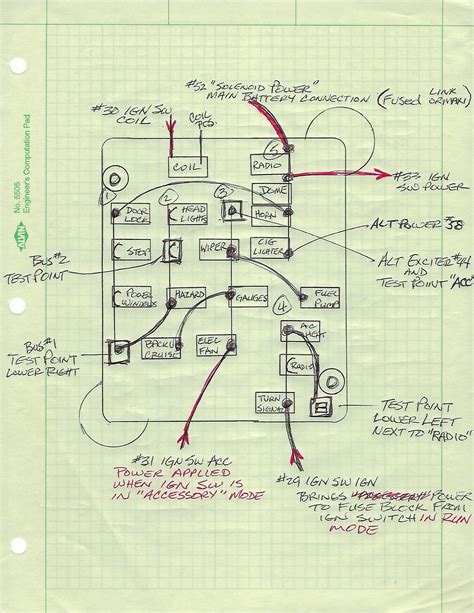 No. 5505
Engineer's Computation Pad
ALVIN
#52 "SOLENOID POWER"
MAIN BATTERY CONNECTION (FUSED LINK OR MAXI)
#30 IGN SW
COIL
COIL
POS.
5
COIL
RADIO
#33 IGN
SW POWER
DOME
1
2
3
DOOR
LOCK
HEAD
LIGHTS
HORN
ALT POWER #38
BUS #2
TEST POINT
STOP
WIPER
CIG
LIGHTER
ALT EXCITER #44
AND
TEST POINT "ACC"
POWER
WINDOWS
HAZARD
GAUGES
4
FUEL
PUMP
BUS #1
TEST POINT
LOWER RIGHT
BACKU
CRUISE
ELEC
FAN
A/C
HEAT
RADIO
TURN
SIGNAL
TEST POINT
LOWER LEFT
NEXT TO "RADIO"
#31 IGN SW ACC
POWER APPLIED
WHEN IGN SW IS
IN "ACCESSORY" MODE
#29 IGN SW IGN
BRINGS POWER
TO FUSE BLOCK FROM
IGN SWITCH IN RUN
MODE